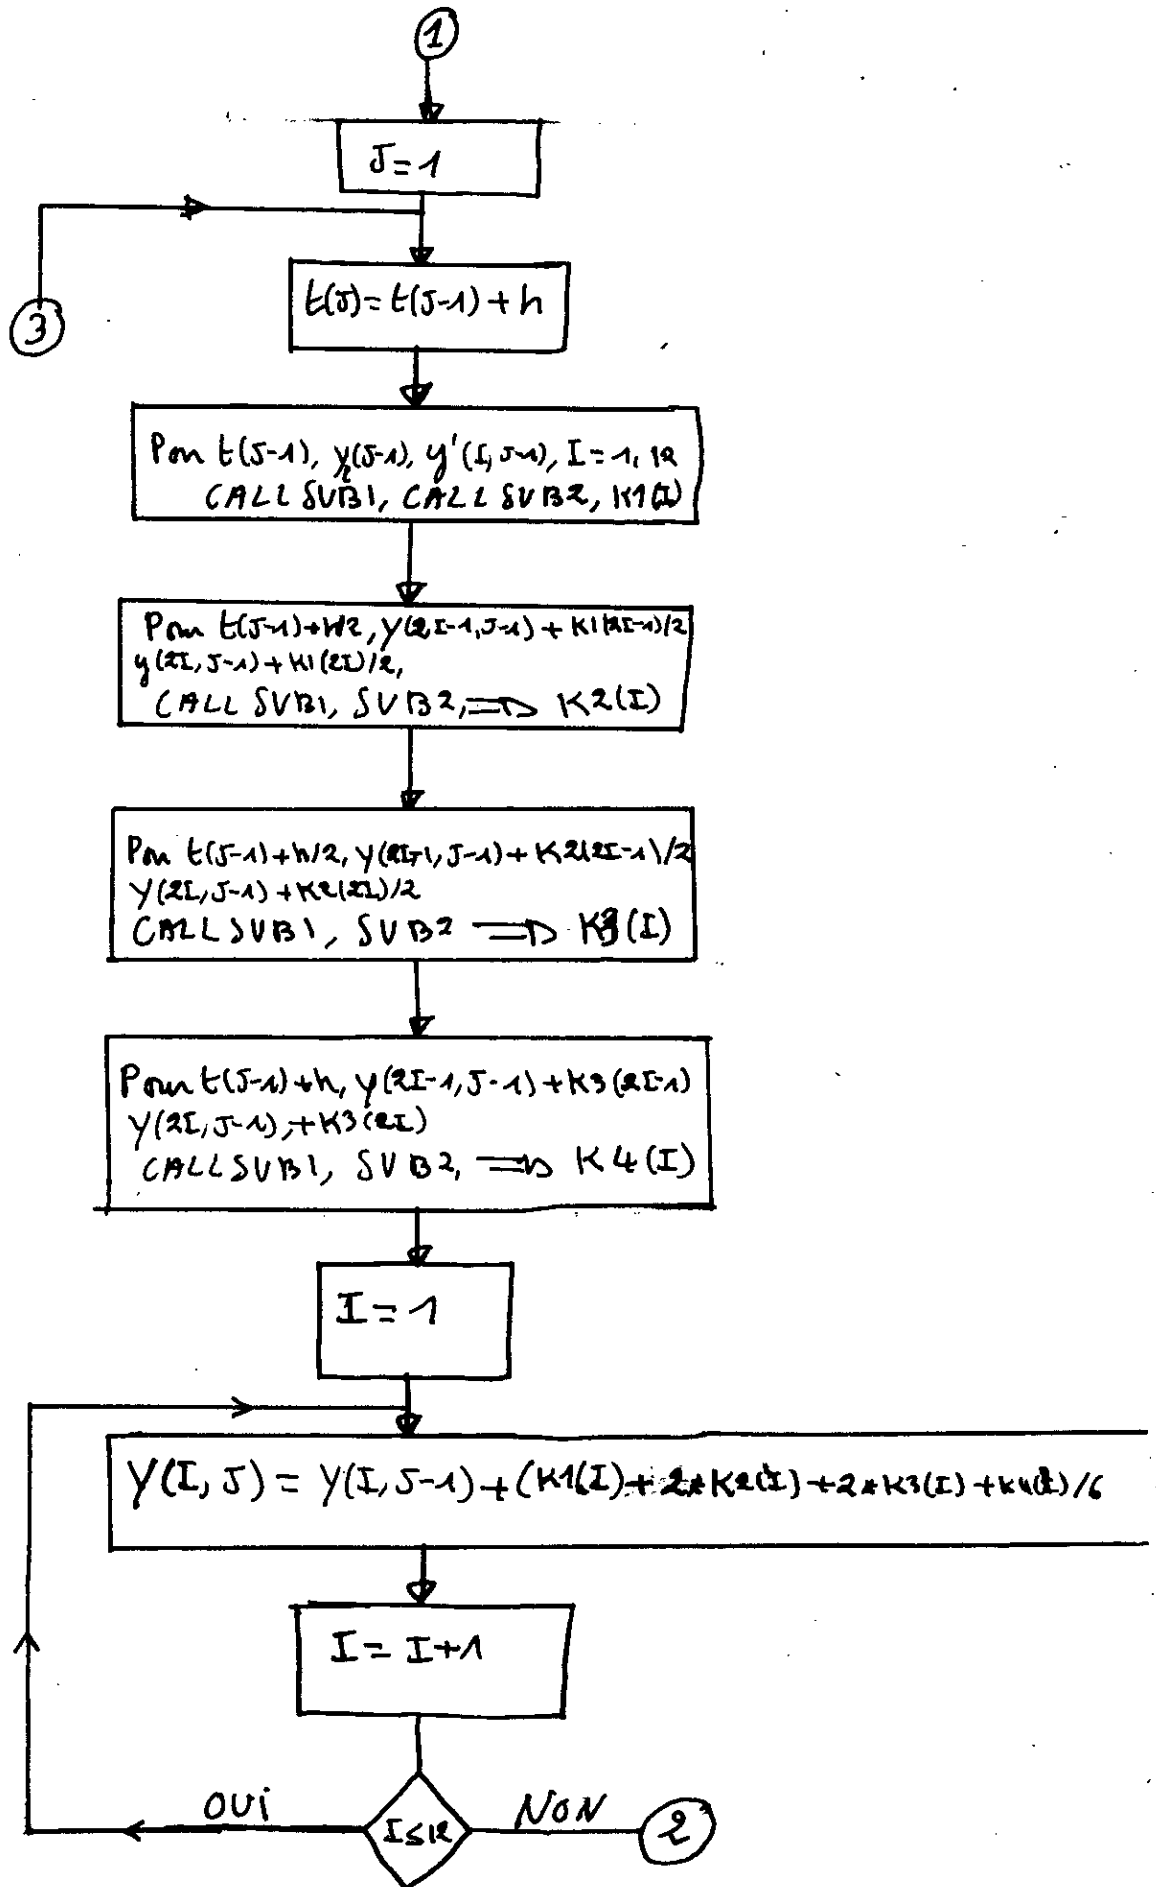 1
J=1
3
t(J)=t(J-1)+h
Pour t(J-1), y(J-1), y'(I,J-1), I=1,12
CALL SUB1, CALL SUB2, K1(I)
Pour t(J-1)+h/2, Y(2I-1,J-1)+K1(2I-1)/2
y(2I,J-1)+K1(2I)/2,
CALL SUB1, SUB2, ⇒ K2(I)
Pour t(J-1)+h/2, Y(2I-1,J-1)+K2(2I-1)/2
Y(2I,J-1)+K2(2I)/2
CALL SUB1, SUB2 ⇒ K3(I)
Pour t(J-1)+h, Y(2I-1,J-1)+K3(2I-1)
Y(2I,J-1),+K3(2I)
CALL SUB1, SUB2, ⇒ K4(I)
I=1
Y(I,J)=Y(I,J-1)+(K1(I)+2*K2(I)+2*K3(I)+K4(I)/6
I=I+1
OUi I≤12 NON 2